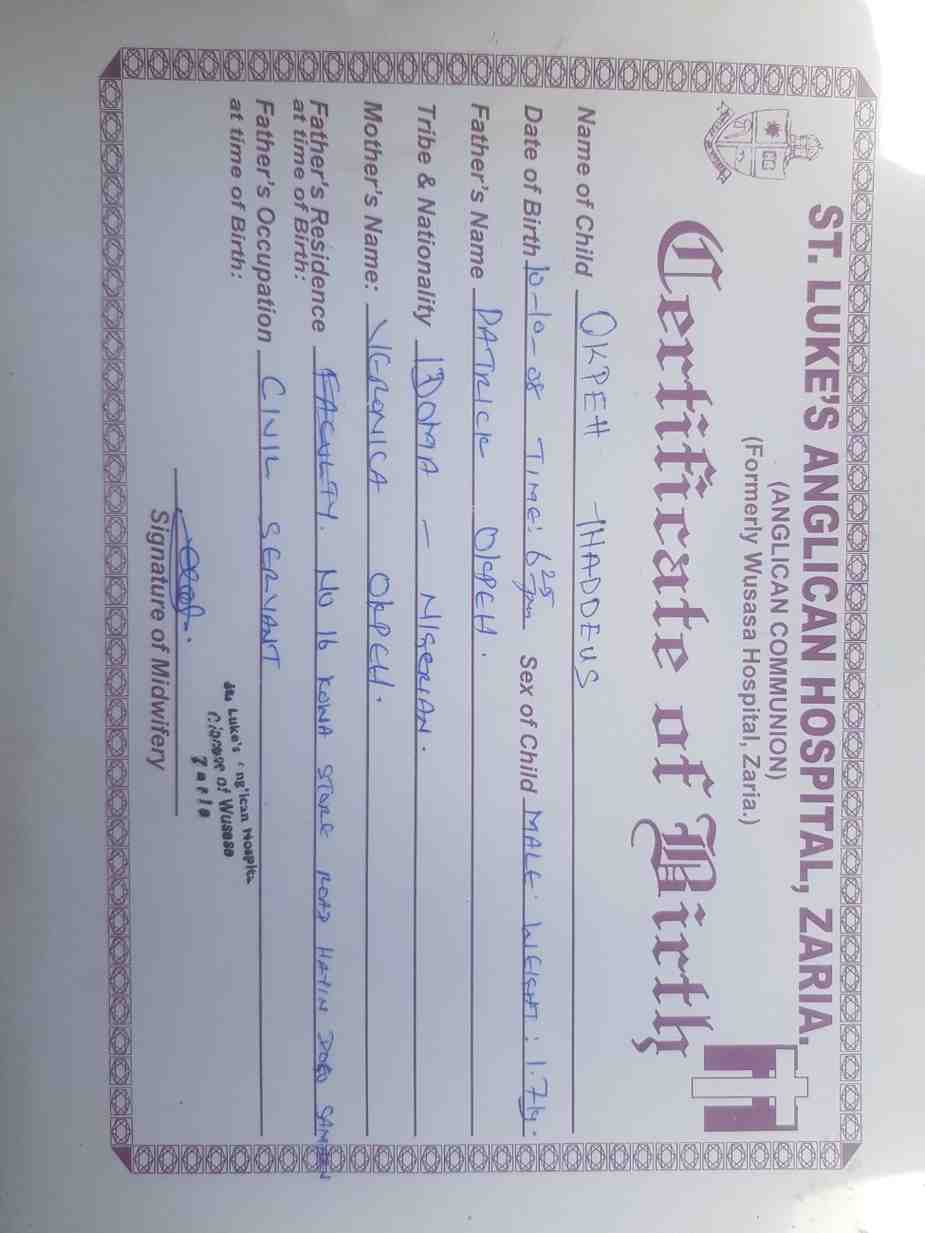 ST. LUKE'S ANGLICAN HOSPITAL, ZARIA.
(ANGLICAN COMMUNION)
(Formerly Wusasa Hospital, Zaria.)
Certificate of Birth
Name of Child OKPEH THADDEUS
Date of Birth 10-10-08 TIME: 6 25 pm Sex of Child MALE. WEIGHT: 1.7kg.
Father's Name PATRICK OKPEH.
Tribe & Nationality IDOMA - NIGERIAN.
Mother's Name: VERONICA OKPEH.
Father's Residence at time of Birth: FACULTY. NO 16 KOWA STORE ROAD HAYIN DOGO SAMARU
Father's Occupation at time of Birth: CIVIL SERVANT
St. Luke's Anglican Hospital
Diocese of Wusasa
Zaria
Signature of Midwifery